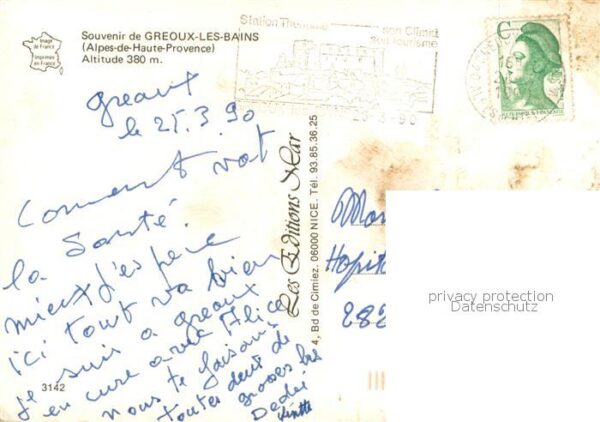 Image
de France
Imprimée
en France
Souvenir de GREOUX-LES-BAINS
(Alpes-de-Haute-Provence)
Altitude 380 m.
Station Thermale
son Climat
son tourisme
25-3-90
C
Greoux
le 25.3.90
Coment vat
la Santé
mieux j'espere
ici tout va bien
je suis a greoux
en cure avec Alice
nous te faisons
toutes deux de
grosses bis
Dedei
3142
Les Editions Mar
4, Bd de Cimiez. 06000 NICE. Tél. 93.85.36.25
Hopit
282
privacy protection
Datenschutz